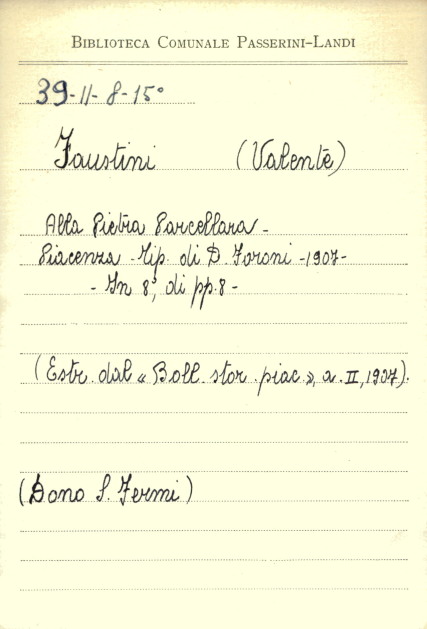 BIBLIOTECA COMUNALE PASSERINI-LANDI
39-II-8-15°
Faustini (Valente)
Alla Pietra Parcellara -
Piacenza - Tip. di D. Foroni - 1907 -
- In 8°, di pp. 8 -
(Estr. dal « Boll. stor. piac. », a. II, 1907).
(Dono S. Fermi)